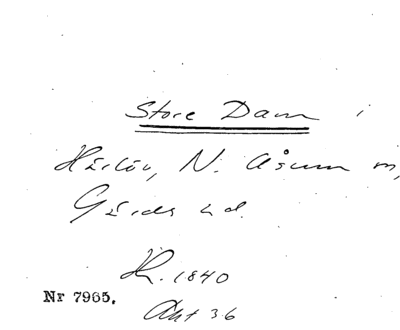 Store Dam i
Härlöv, N. Åsum m,
Gärds hd.
K. 1840
Nr 7965.
Akt 36